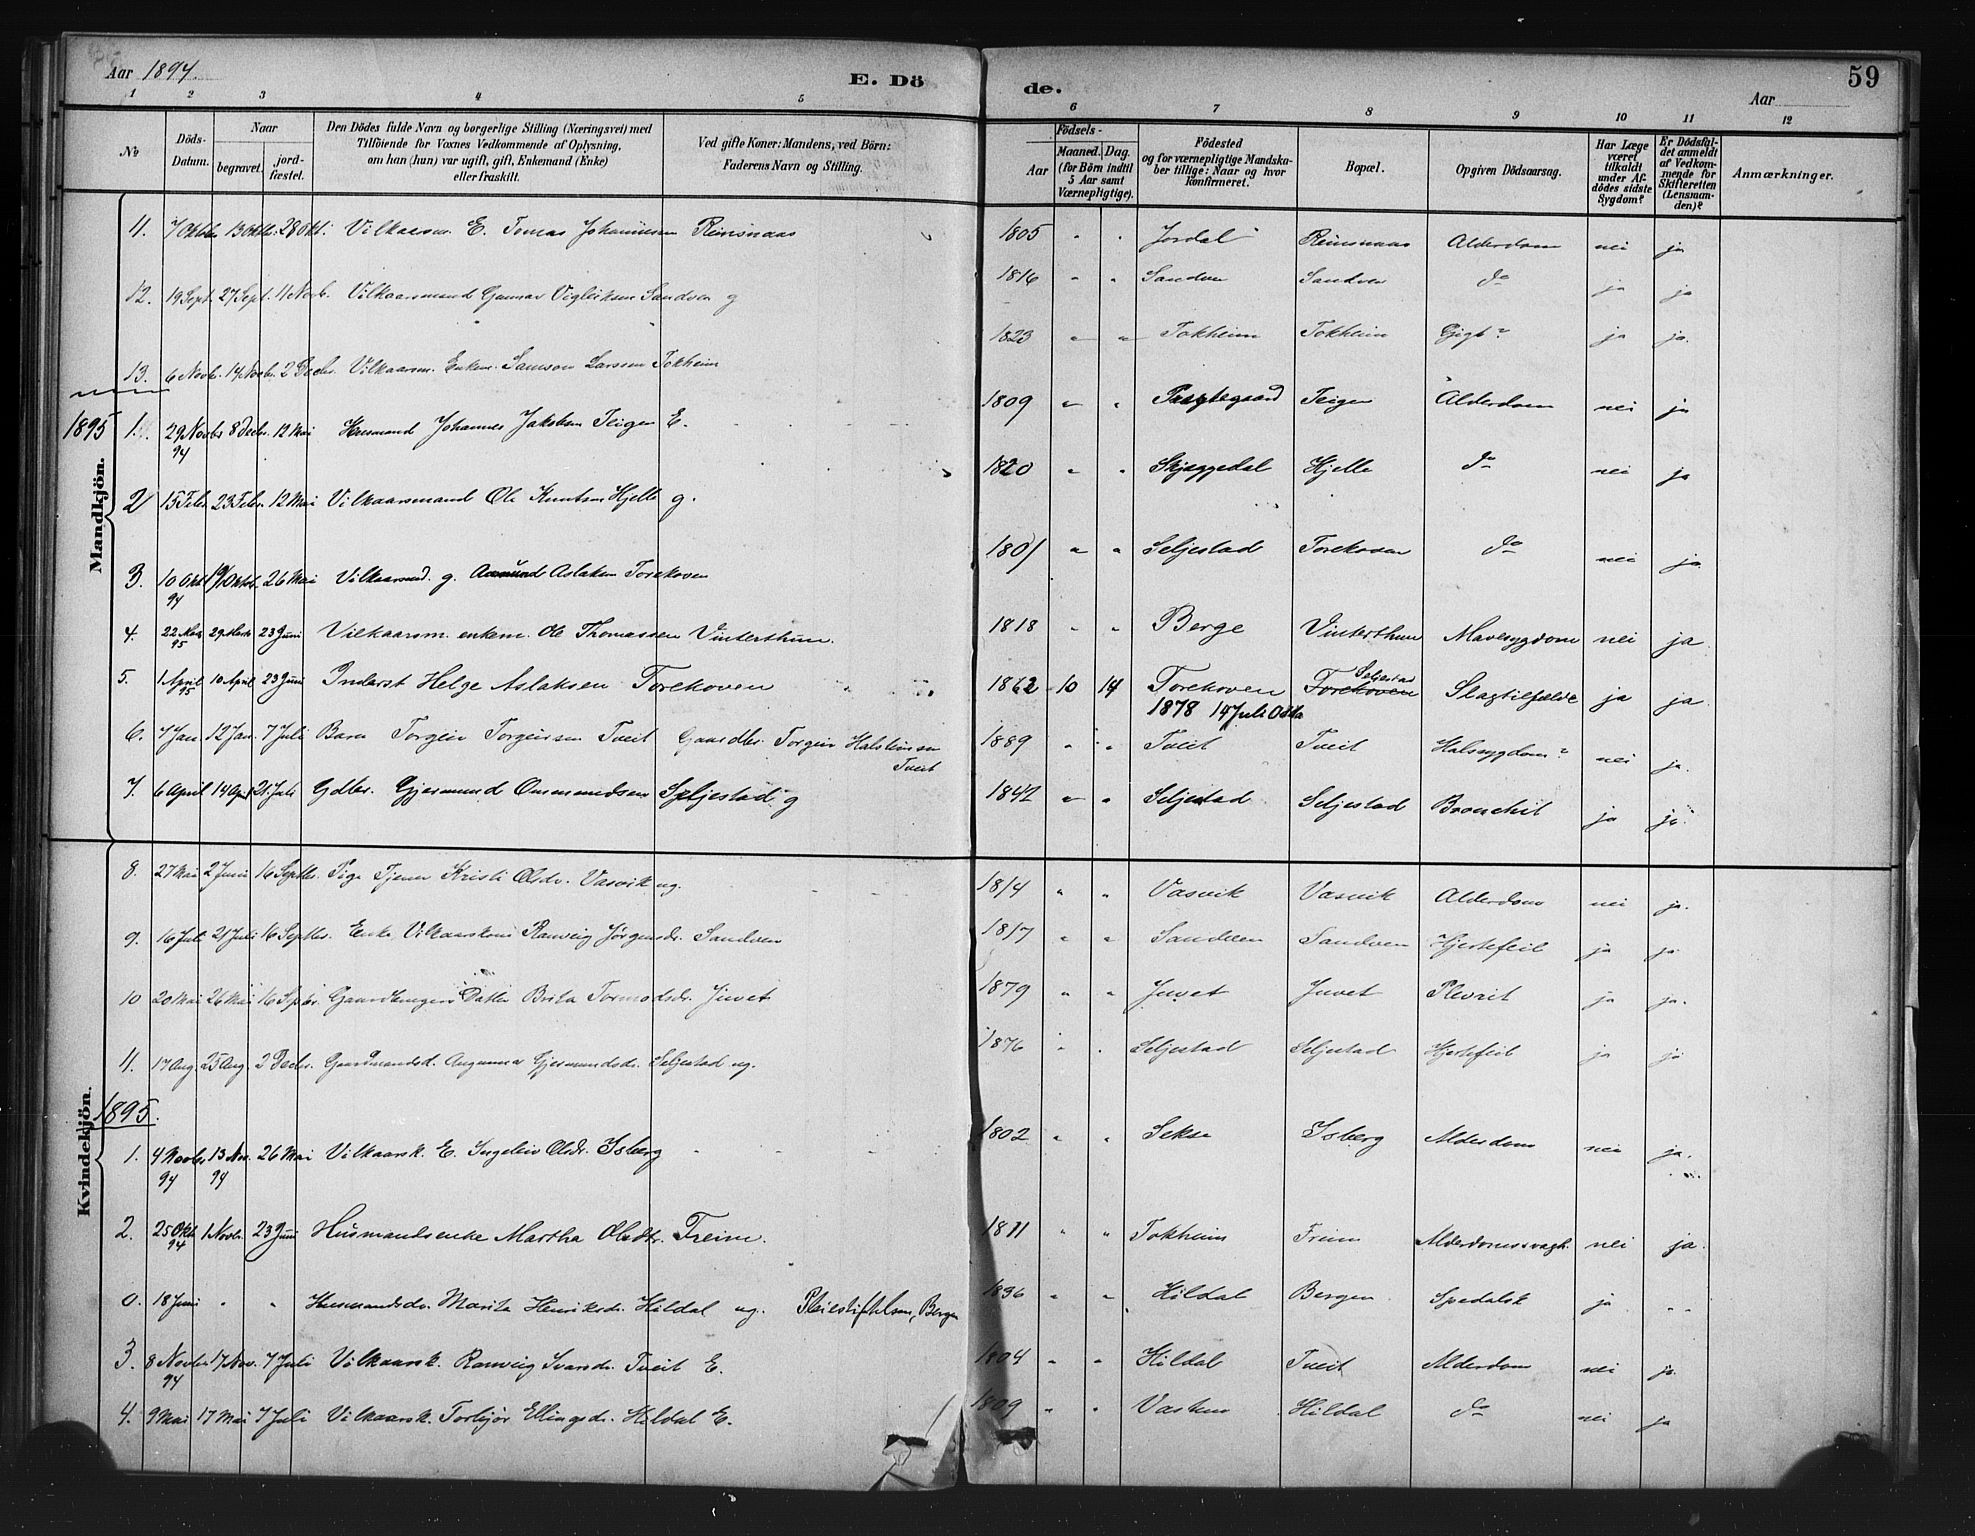 Aar 1894.
E. Dö
de.
Aar
59
1 2 3 4 5 6 7 8 9 10 11 12
No
Döds-Datum.
Naar
begravet.
jord-fæstet.
Den Dödes fulde Navn og borgerlige Stilling (Næringsvei) med
Tilföiende for Voxnes Vedkommende af Oplysning,
om han (hun) var ugift, gift, Enkemand (Enke)
eller fraskilt.
Ved gifte Koner: Mandens, ved Börn:
Faderens Navn og Stilling.
Födsels-
Aar
Maaned. Dag.
(for Börn indtil
5 Aar samt
Værnepligtige).
Födested
og for værnepligtige Mandska-
ber tillige: Naar og hvor
konfirmeret.
Bopæl.
Opgiven Dödsaarsag.
Har Læge
været
tilkaldt
under Af-
dödes sidste
Sygdom?
Er Dödsfal-
det anmeldt
af Vedkom-
mende for
Skifteretten
(Lensman-
den)?
Anmærkninger.
Mandkjön.
11. 7 Oktbr 13 Oktbr. 28 Okt. Vilkaarsm. E. Tomas Johannesen Reinsnaas 1805 " " Jordal Reinsnaas Alderdom nei ja
12. 19 Sept. 27 Sept. 4 Novb. Vilkaarsmand Gunnar Vigleiksen Sandven g 1816 " " Sandven Sandven do ja ja
13. 6 Novb. 14 Novbr. 2 Decbr. Vilkaarsm. Enkem. Samson Larssen Tokheim 1823 " " Tokheim Tokheim Gigt? ja ja.
1895
1. 29 Novbr 94 8 Decbr. 12 Mai Husmand Johannes Jakobsen Teigen E. 1809 " " Præstegaard Teigen Alderdom nei ja
2 15 Febr. 23 Febr. 12 Mai Vilkaarsmand Ole Knutsen Hjelle g. 1820 " " Skjæggedal Hjelle do nei ja
3. 10 Okt 94 19 Oktb. 26 Mai Vilkaarsmd. g. Aamund Aslaksen Torekoven 1801 " " Seljestad Torekoven do nei ja.
4. 22 Mar 95 29 Marts 23 Juni Vilkaarsm. enkem. Ole Thomassen Vinterthun. 1818 " " Berge Vinterthun Mavesygdom nei ja.
5. 1 April 95 10 April 23 Juni Inderst Helge Aslaksen Torekoven 1862 10 14 Torekoven Torekoven Seljestad Slagtilfælde ja ja.
1878 14 Juli Odda
6. 7 Jan. 12 Jan. 7 Juli Barn Torgeir Torgeirsen Tveit Gaardbr. Torgeir Halsteinsen
Tveit 1889 " " Tveit Tveit Halssygdom? nei ja.
7. 6 April 14 Apr 21. Juli Gdbr. Gjermund Ommundsen Seljestad g 1842 " " Seljestad Seljestad Bronchit ja ja.
Kvindekjön.
8. 27 Mai 2 Juni 16 Septbr. Pige Tjener Kristi Olsdr. Vasvik ug. 1814 " " Vasvik Vasvik Alderdom nei ja.
9. 16 Juli 21 Juli 16 Septbr. Enke, Vilkaarskone Ranveig Jørgensdr. Sandven 1817 " " Sandven Sandven Hjertefeil ja ja
10 20 Mai 26 Mai 16 Sepbr. Gaardbrugers Datter Brita Tormodsdr. Juvet 1879 " " Juvet Juvet Plevrit ja ja.
11. 17 Aug 25 Aug. 2 Decbr. Gaardmandsd. Angunna Gjermundsdr. Seljestad ug. 1876 " " Seljestad Seljestad Hjertefeil ja ja
1895.
1. 4 Novbr 94 13 Nov. 94 26 Mai Vilkaarsk. E. Ingeleiv Olsdr. Isberg 1802 " " Sekse Isberg Alderdom nei ja.
2. 25 Okt. 94 1 Novbr. 23 Juni Husmandsenke Martha Olsdtr. Freim. 1811 " " Tokheim Freim Alderdomssvagh. nei ja.
0. 18 Juni " " Husmandsdr. Marita Henriksdr. Hildal ug. Pleiestiftelsen, Bergen 1836 " " Hildal Bergen Spedalsk ja " "
3. 8 Novbr 94 17 Nov. 7 Juli Vilkaarsk. Ranveig Ivarsdr. Tveit E. 1804 " " Hildal Tveit Alderdom nei ja.
4. 9 Mai 17 Mai 7 Juli Vilkaarsk. Torbjør Ellingsdr. Hildal E. 1809 " " Vastun Hildal do nei ja